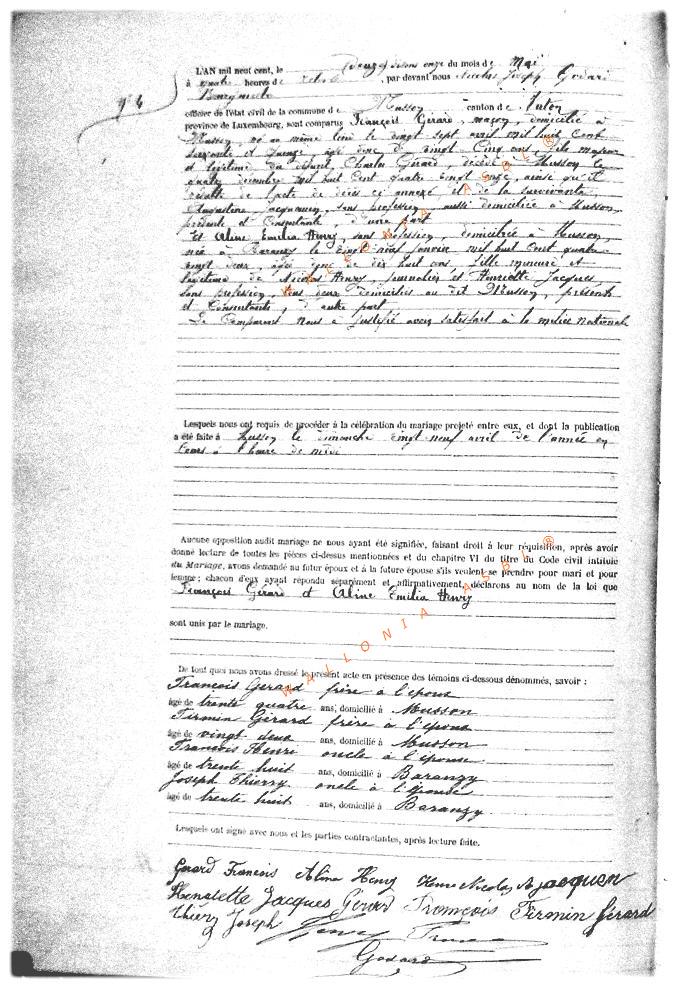 L'AN mil neuf cent, le douze disons onze du mois de Mai
à quatre heures de relevée, par devant nous Nicolas Joseph Godard
Bourgmestre
N° 4
officier de l'état civil de la commune de Musson canton de Virton
province de Luxembourg, sont comparus François Gérard, maçon, domicilié à
Musson, né au même lieu le vingt sept avril mil huit cent
soixante et quinze, âgé donc de vingt cinq ans, fils majeur
et légitime du défunt Charles Gérard, décédé à Musson le
quatre décembre mil huit cent quatre vingt onze, ainsi qu'il
résulte de l'acte de décès ci annexé et de la survivante
Augustine Jacquemin, sans profession, aussi domiciliée à Musson,
présente et consentante, d'une part
Et Aline Emilia Henry, sans profession, domiciliée à Musson,
née à Baranzy le vingt neuf janvier mil huit cent quatre
vingt deux, âgée donc de dix huit ans, fille mineure et
légitime de Nicolas Henry, journalier et Henriette Jacques
sans profession, tous deux domiciliés au dit Musson, présents
et consentants, d'autre part.
Le comparant nous a justifié avoir satisfait à la milice nationale
Lesquels nous ont requis de procéder à la célébration du mariage projeté entre eux, et dont la publication
a été faite à Musson le dimanche vingt neuf avril de l'année en
cours à l'heure de midi
Aucune opposition audit mariage ne nous ayant été signifiée, faisant droit à leur réquisition, après avoir
donné lecture de toutes les pièces ci-dessus mentionnées et du chapitre VI du titre du Code civil intitulé
du Mariage, avons demandé au futur époux et à la future épouse s'ils veulent se prendre pour mari et pour
femme ; chacun d'eux ayant répondu séparément et affirmativement, déclarons au nom de la loi que
François Gérard et Aline Emilia Henry
sont unis par le mariage.
De tout quoi nous avons dressé le présent acte en présence des témoins ci-dessous dénommés, savoir :
François Gérard frère à l'époux
âgé de trente quatre ans, domicilié à Musson
Firmin Gérard frère à l'époux
âgé de vingt deux ans, domicilié à Musson
François Henri oncle à l'épouse
âgé de trente huit ans, domicilié à Baranzy
Joseph Thierry oncle à l'épouse
âgé de trente huit ans, domicilié à Baranzy
Lesquels ont signé avec nous et les parties contractantes, après lecture faite.
Gerard François Aline Henry Henri Nicolas A Jacquen
Henriette Jacques Gérard François Firmin Gérard
Thiery Joseph Henry
Godard
WALLONIA ASBL ®
WALLONIA ASBL ®